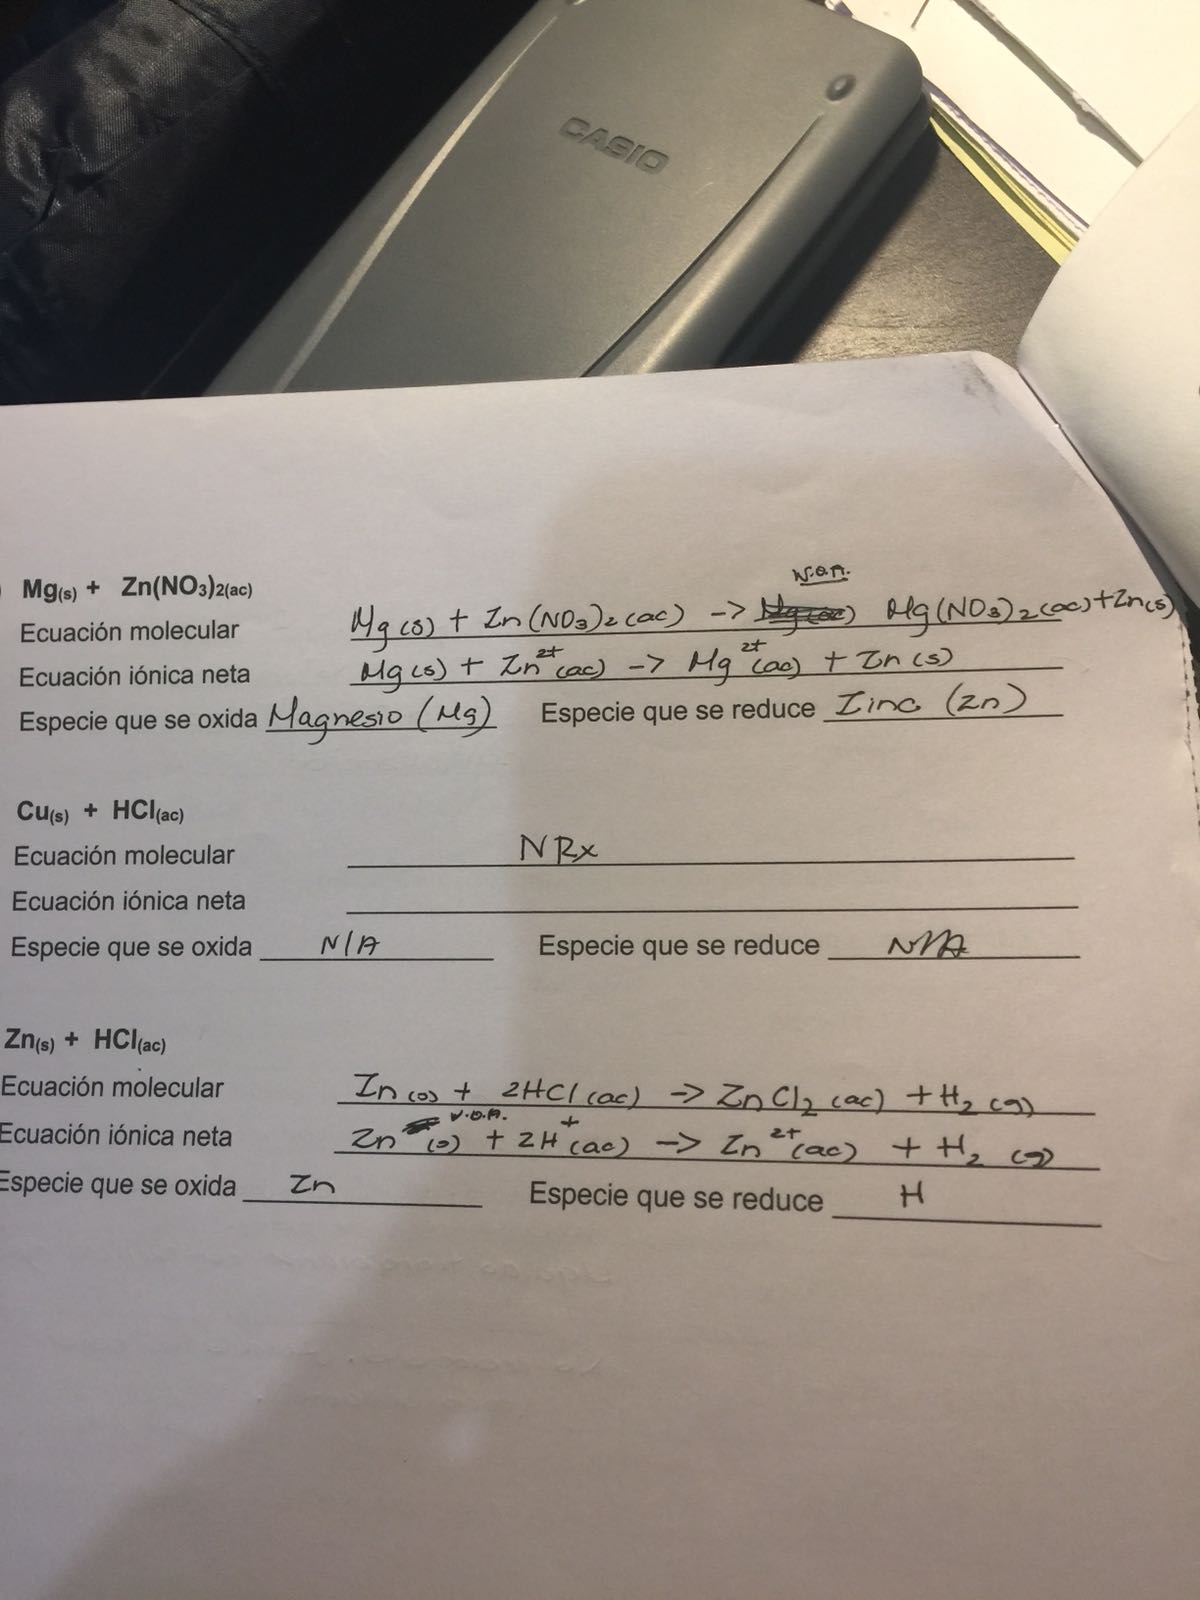 CASIO
Mg(s) + Zn(NO3)2(ac)
Ecuación molecular Mg (s) + Zn (NO3)2 (ac) -> Mg(NO3)2 (ac) + Zn (s)
Ecuación iónica neta Mg (s) + Zn2+ (ac) -> Mg2+ (ac) + Zn (s)
Especie que se oxida Magnesio (Mg) Especie que se reduce Zinc (Zn)
Cu(s) + HCl(ac)
Ecuación molecular NRx
Ecuación iónica neta
Especie que se oxida N/A Especie que se reduce N/A
Zn(s) + HCl(ac)
Ecuación molecular Zn (s) + 2HCl (ac) -> ZnCl2 (ac) + H2 (g)
Ecuación iónica neta Zn (s) + 2H+ (ac) -> Zn2+ (ac) + H2 (g)
Especie que se oxida Zn Especie que se reduce H